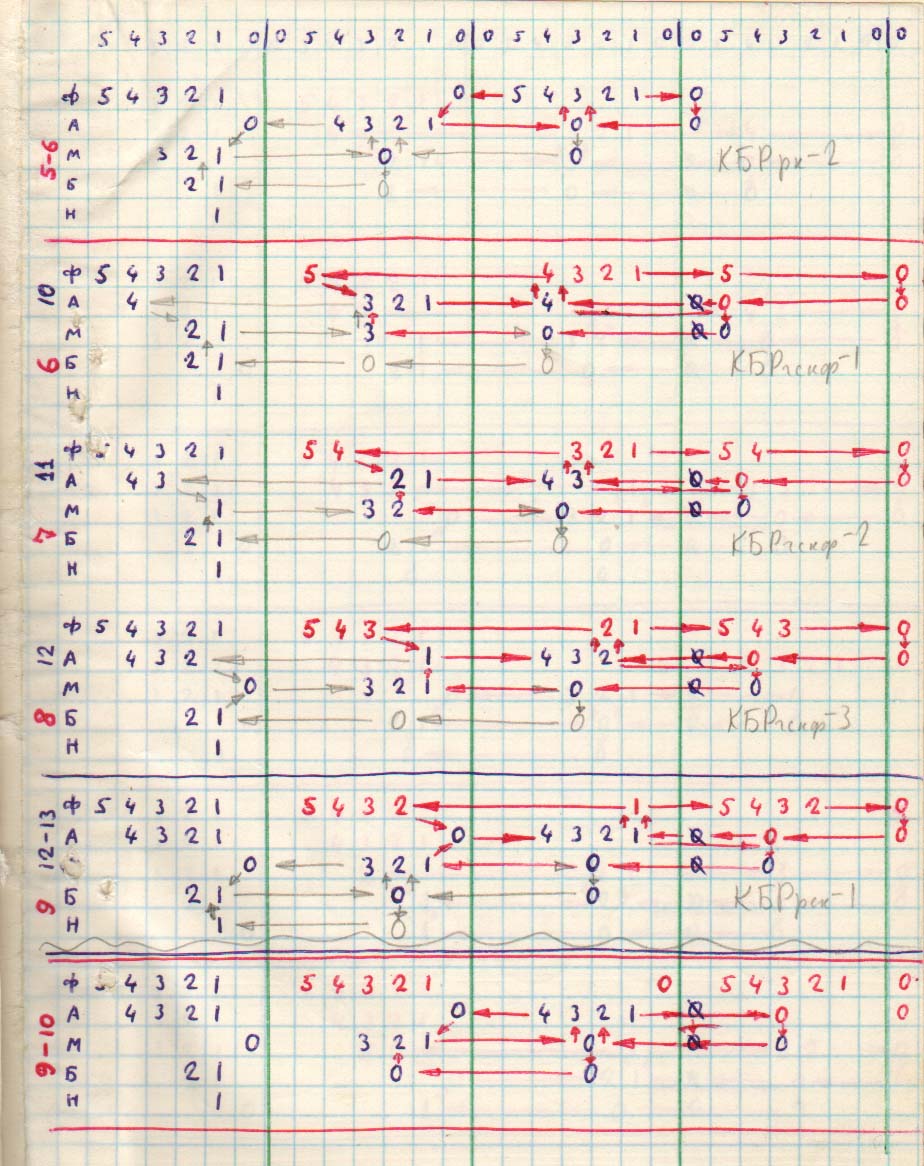 5 4 3 2 1 0 0 5 4 3 2 1 0 0 5 4 3 2 1 0 0 5 4 3 2 1 0 0
5-6
Ф 5 4 3 2 1 0 5 4 3 2 1 0
А 0 4 3 2 1 0 0
М 3 2 1 0 0 КБРрк-2
Б 2 1 0
Н 1
10
6
Ф 5 4 3 2 1 5 4 3 2 1 5 0
А 4 3 2 1 4 0 0 0
М 2 1 3 0 0 0
Б 2 1 0 0 КБРгскф-1
Н 1
11
7
Ф 5 4 3 2 1 5 4 3 2 1 5 4 0
А 4 3 2 1 4 3 0 0 0
М 1 3 2 0 0 0
Б 2 1 0 0 КБРгскф-2
Н 1
12
8
Ф 5 4 3 2 1 5 4 3 2 1 5 4 3 0
А 4 3 2 1 4 3 2 0 0 0
М 0 3 2 1 0 0 0
Б 2 1 0 0 КБРгскф-3
Н 1
12-13
9
Ф 5 4 3 2 1 5 4 3 2 1 5 4 3 2 0
А 4 3 2 1 0 4 3 2 1 0 0 0
0 3 2 1 0 0 0
Б 2 1 0 0 КБРрск-1
Н 1 0
9-10
Ф 5 4 3 2 1 5 4 3 2 1 0 5 4 3 2 1 0
А 4 3 2 1 0 4 3 2 1 0 0 0
М 0 3 2 1 0 0 0
Б 2 1 0 0
Н 1